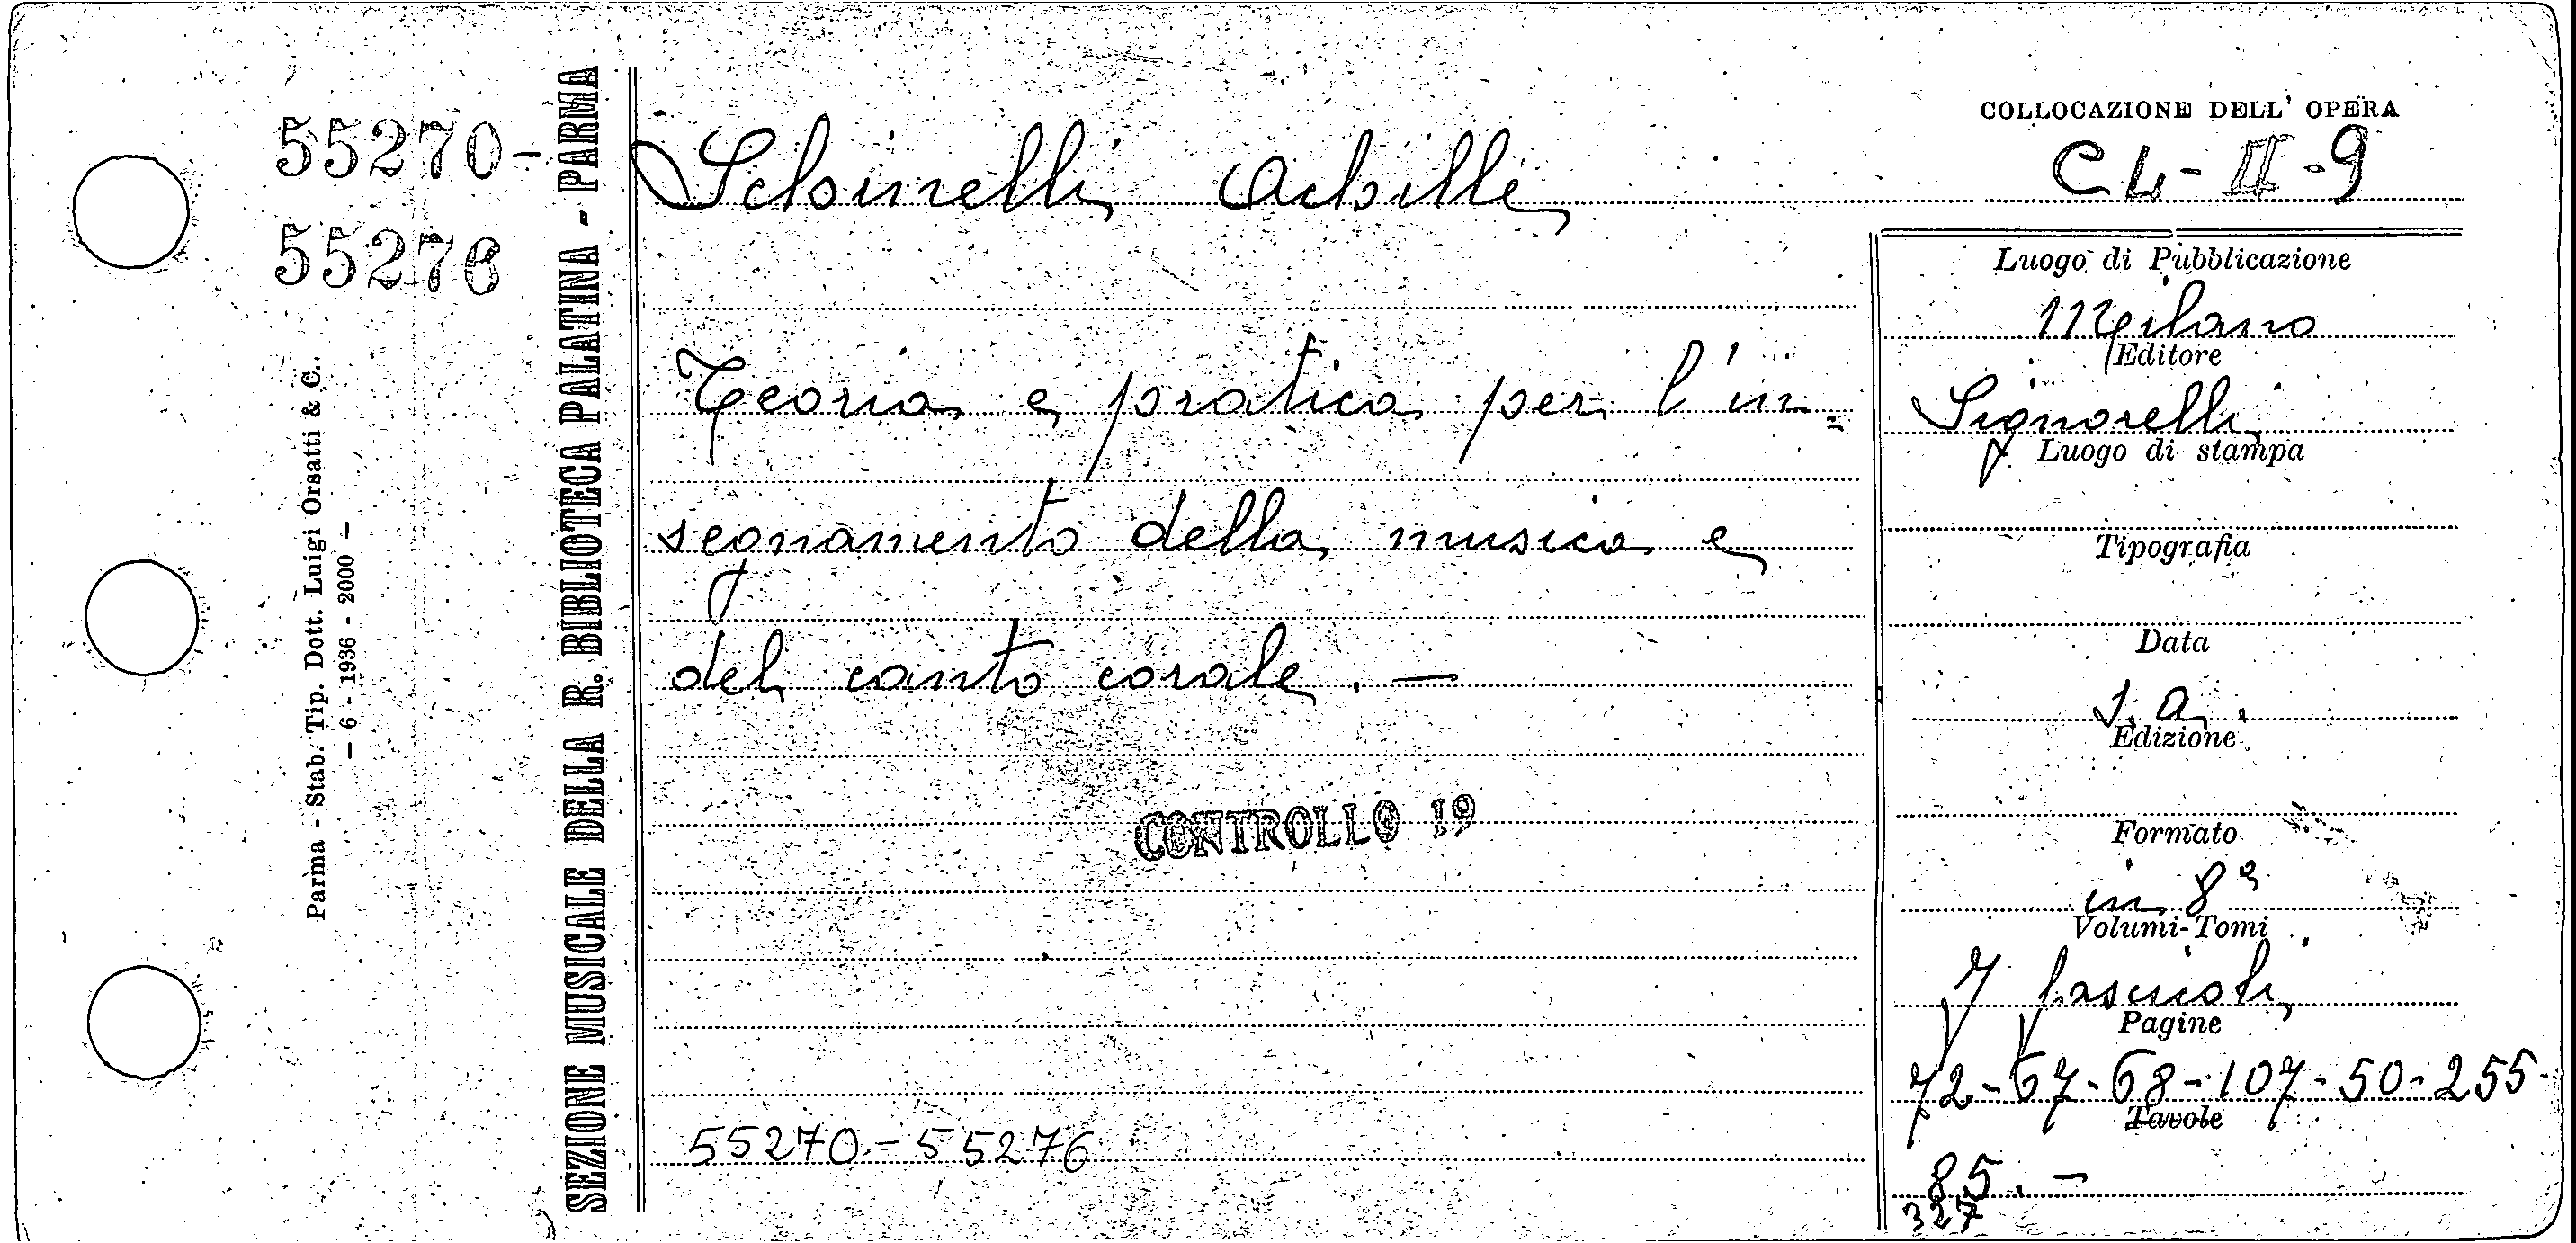 55270-
55276
Parma - Stab. Tip. Dott. Luigi Orsatti & C.
- 6 - 1936 - 2000 -
SEZIONE MUSICALE DELLA R. BIBLIOTECA PALATINA - PARMA
Schinelli Achille
Teoria e pratica per l'in=
segnamento della musica e
del canto corale. —
CONTROLLO 19
55270-55276
COLLOCAZIONE DELL' OPERA
CL-II-9
Luogo di Pubblicazione
Milano
Editore
Signorelli
Luogo di stampa
Tipografia
Data
s. a.
Edizione
Formato
in 8°
Volumi-Tomi
7 fascicoli
Pagine
72-67-68-107-50-255-
Tavole
85. —
327